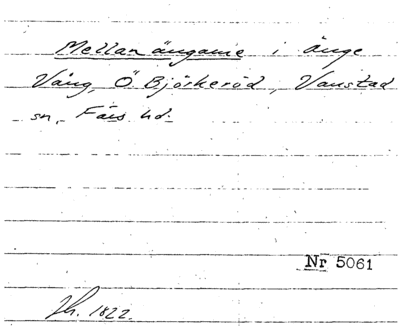 Mellan ängarne i änge
Vång, Ö Björkeröd, Vanstad
sn, Färs hd.
Nr 5061
1822.